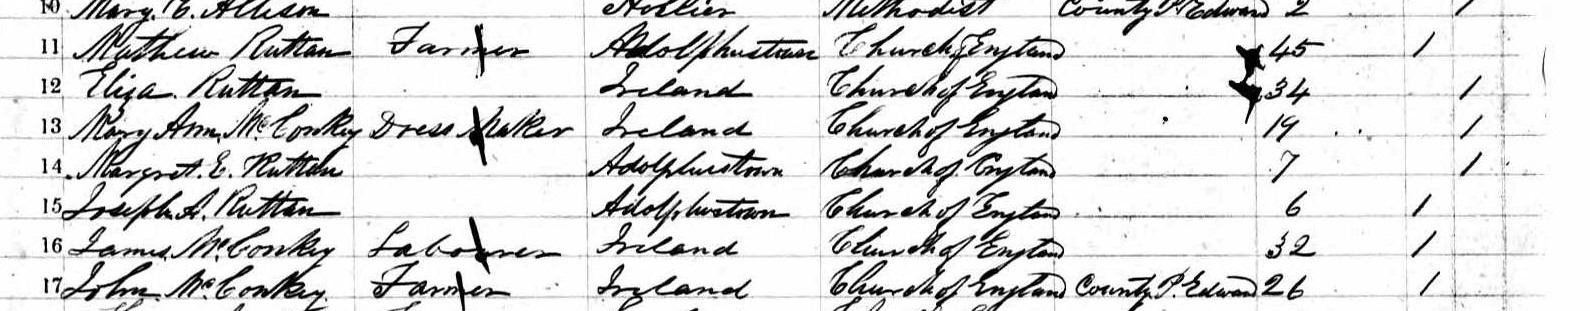 10 Mary. E. Allison Methodist County P. Edward 2 1
11 Mathew Ruttan Farmer Adolphustown Church of England 45 1
12 Eliza. Ruttan Ireland Church of England 34 1
13 Mary Ann. McConkey Dress Maker Ireland Church of England 19 1
14 Margret. E. Ruttan Adolphustown Church of England 7 1
15 Joseph A. Ruttan Adolphustown Church of England 6 1
16 James. McConkey Labourer Ireland Church of England 32 1
17 John. McConkey. Farmer Ireland Church of England County P. Edward 26 1